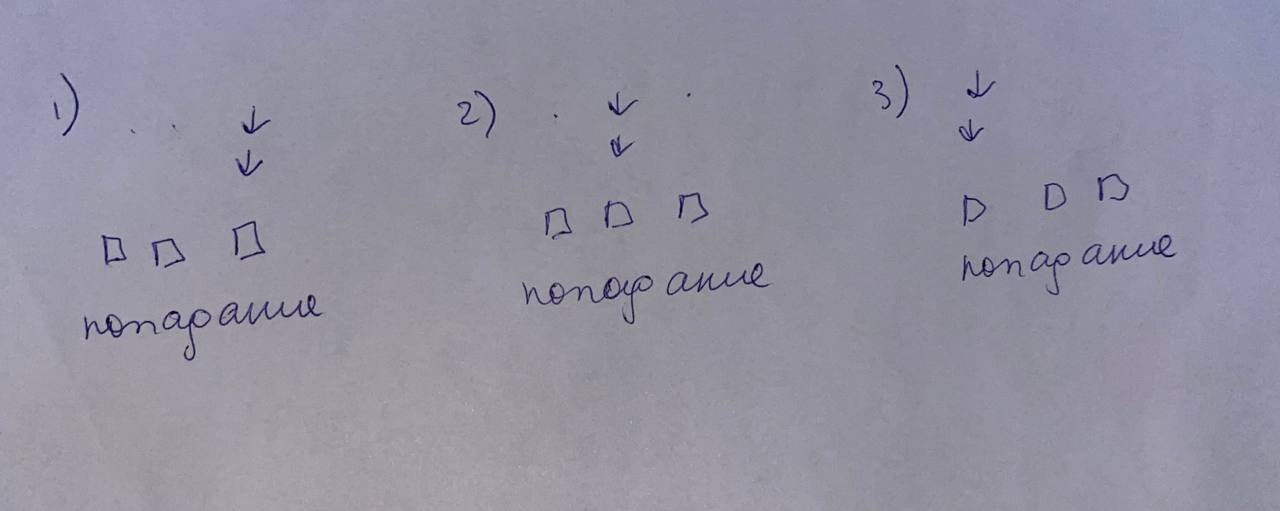 1)
2)
3)
попадание
попадание
попадание